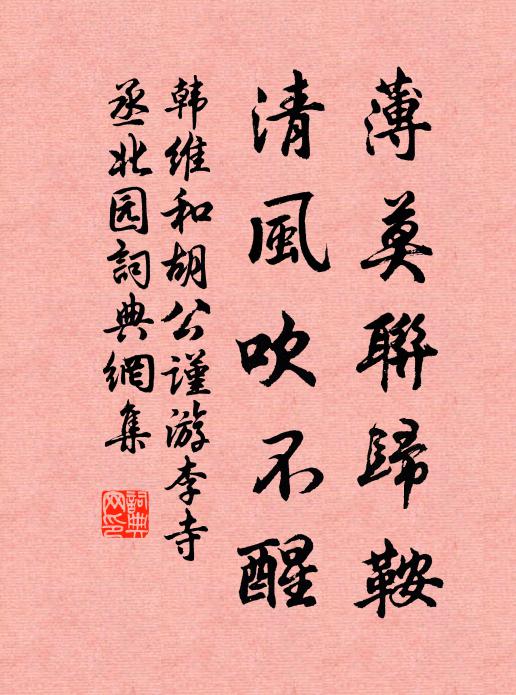 薄莫聯歸鞍
清風吹不醒
韩维和胡公謹游李寺
丞北园詞典網集
詞典網印